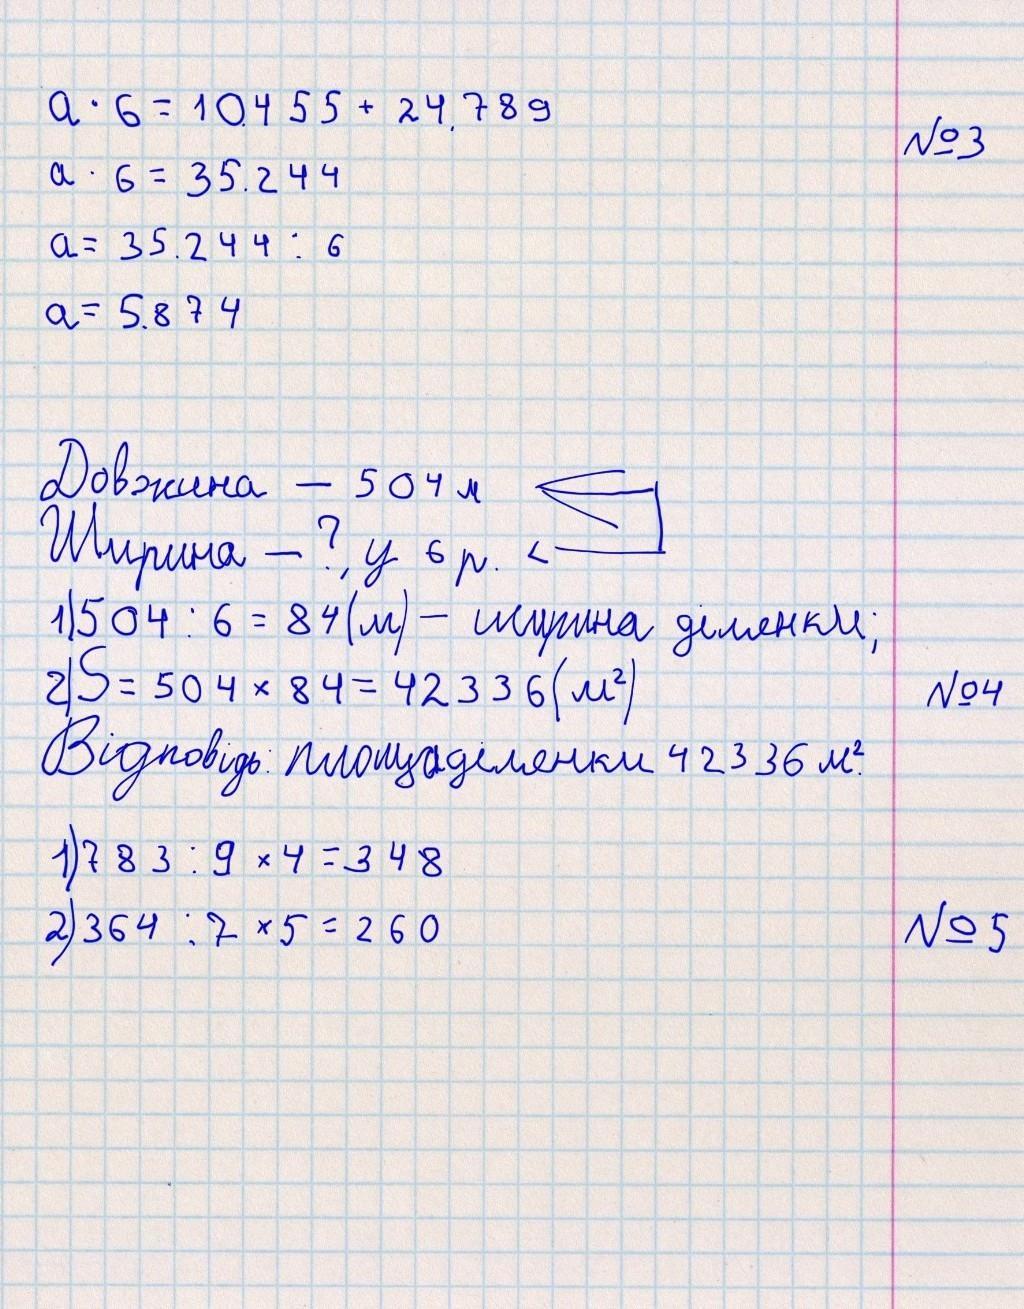 a · 6 = 10.455 + 24.789
№3
a · 6 = 35.244
a = 35.244 : 6
a = 5.874
Довжина – 504 м
Ширина – ?, у 6 р. <
1) 504 : 6 = 84 (м) – ширина діленки;
2) S = 504 × 84 = 42336 (м²)
№4
Відповідь: площа діленки 42336 м².
1) 783 : 9 × 4 = 348
2) 364 : 7 × 5 = 260
№5